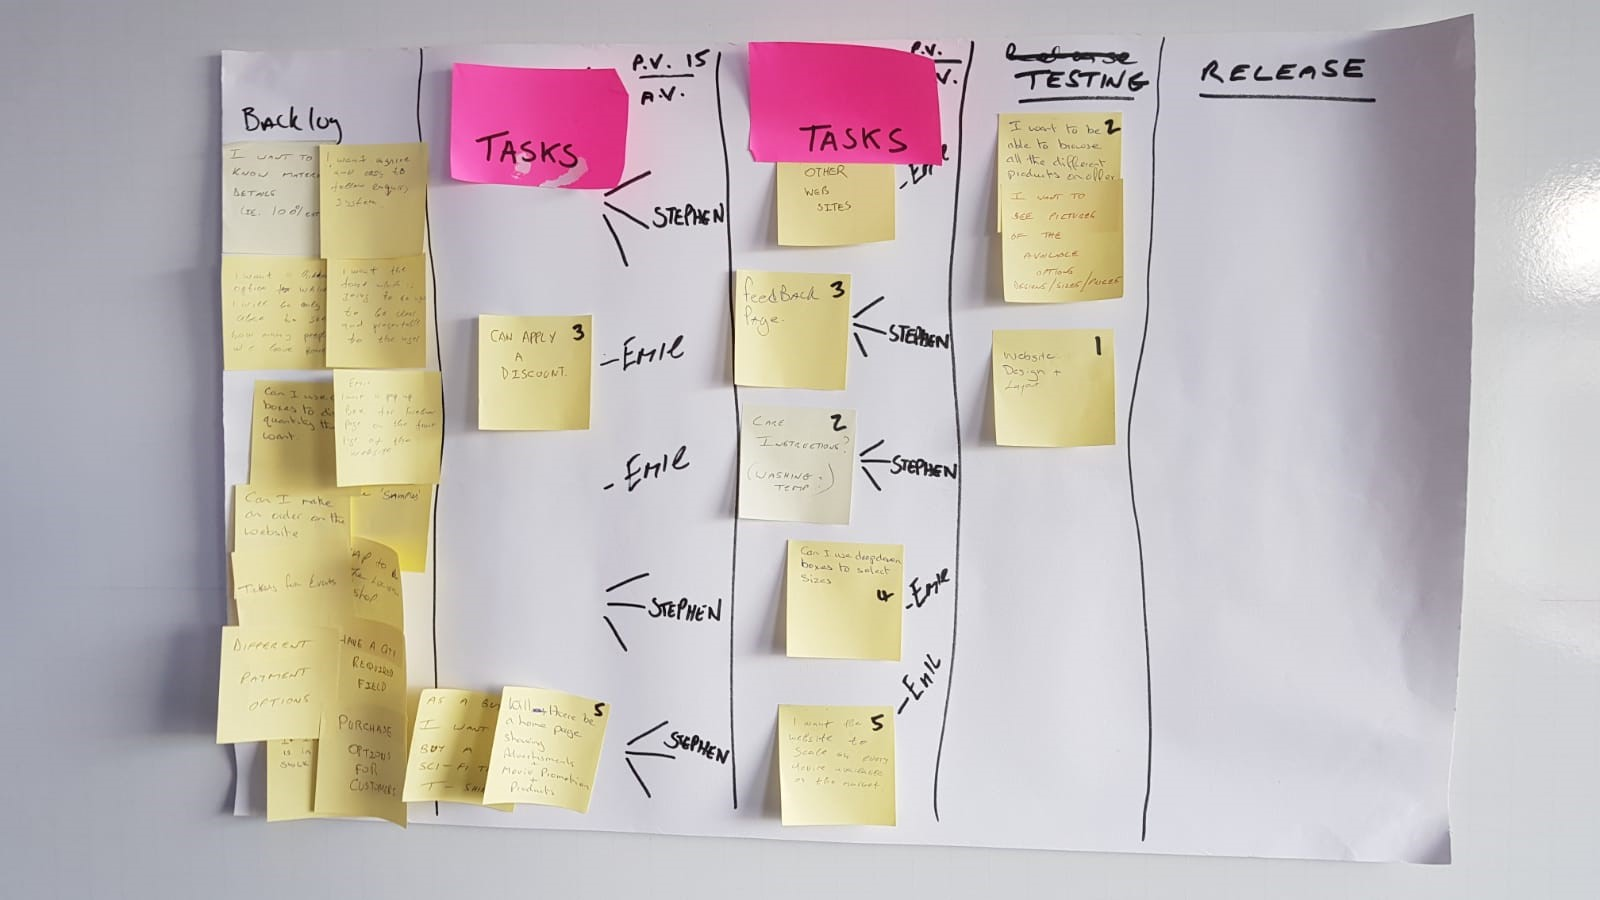 Backlog
I WANT TO
KNOW
DETAILS
(IE. 100%
I want
and easy to
follow enquiry
system.
I want a
option
I will be only
I want the
to be
to be clear
and presentable
to the user
Can I use
boxes to
quantity
want.
Box for
page on the front
of the
website
Can I make
an order on the
website
'SAMPLES'
Tickets for Events
TO
SHOP
DIFFERENT
PAYMENT
OPTIONS
HAVE A QTY
REQUIRED
FIELD
PURCHASE
OPTIONS
FOR
CUSTOMERS
IS IN
STOCK
TASKS
P.V. 15
A.V.
STEPHEN
CAN APPLY 3
A
DISCOUNT.
- EMIL
- EMIL
STEPHEN
AS A
I WANT
BUY A
SCI-FI
T-
Will there be 5
a home page
showing
Advertisments
+
Movie Promotion
+
Products
STEPHEN
TASKS
P.V.
V.
OTHER
WEB
SITES
feedBack 3
Page.
STEPHEN
CARE 2
INSTRUCTIONS?
(WASHING
TEMP.)
STEPHEN
Can I use dropdown
boxes to select
Sizes
4
- EMIL
I want the 5
website to
Scale on every
device available
on the market
- EMIL
TESTING
I want to be 2
able to browse
all the different
products on offer
I WANT TO
SEE PICTURES
OF THE
AVAILABLE
OPTIONS
DESIGNS/SIZES/PRICES
1
Website
Design +
Layout
RELEASE